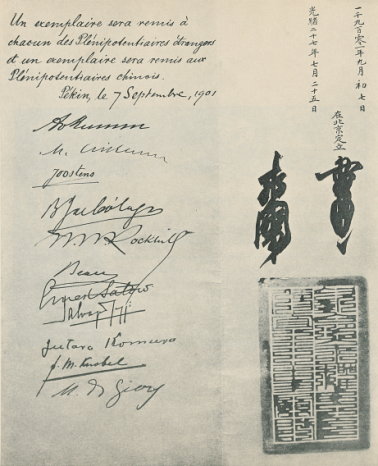 Un exemplaire sera remis à
chacun des Plénipotentiaires étrangers
et un exemplaire sera remis aux
Plénipotentiaires chinois.
Pékin, le 7 Septembre, 1901
A v Mumm
M. Czikann
Joostens
B J de Cólogan
W. W. Rockhill
Beau
Ernest Satow
Salvago Raggi
Jutaro Komura
F. M. Knobel
M. de Giers
一千九百零一年九月初七日
光緒二十七年七月二十五日
在北京定立